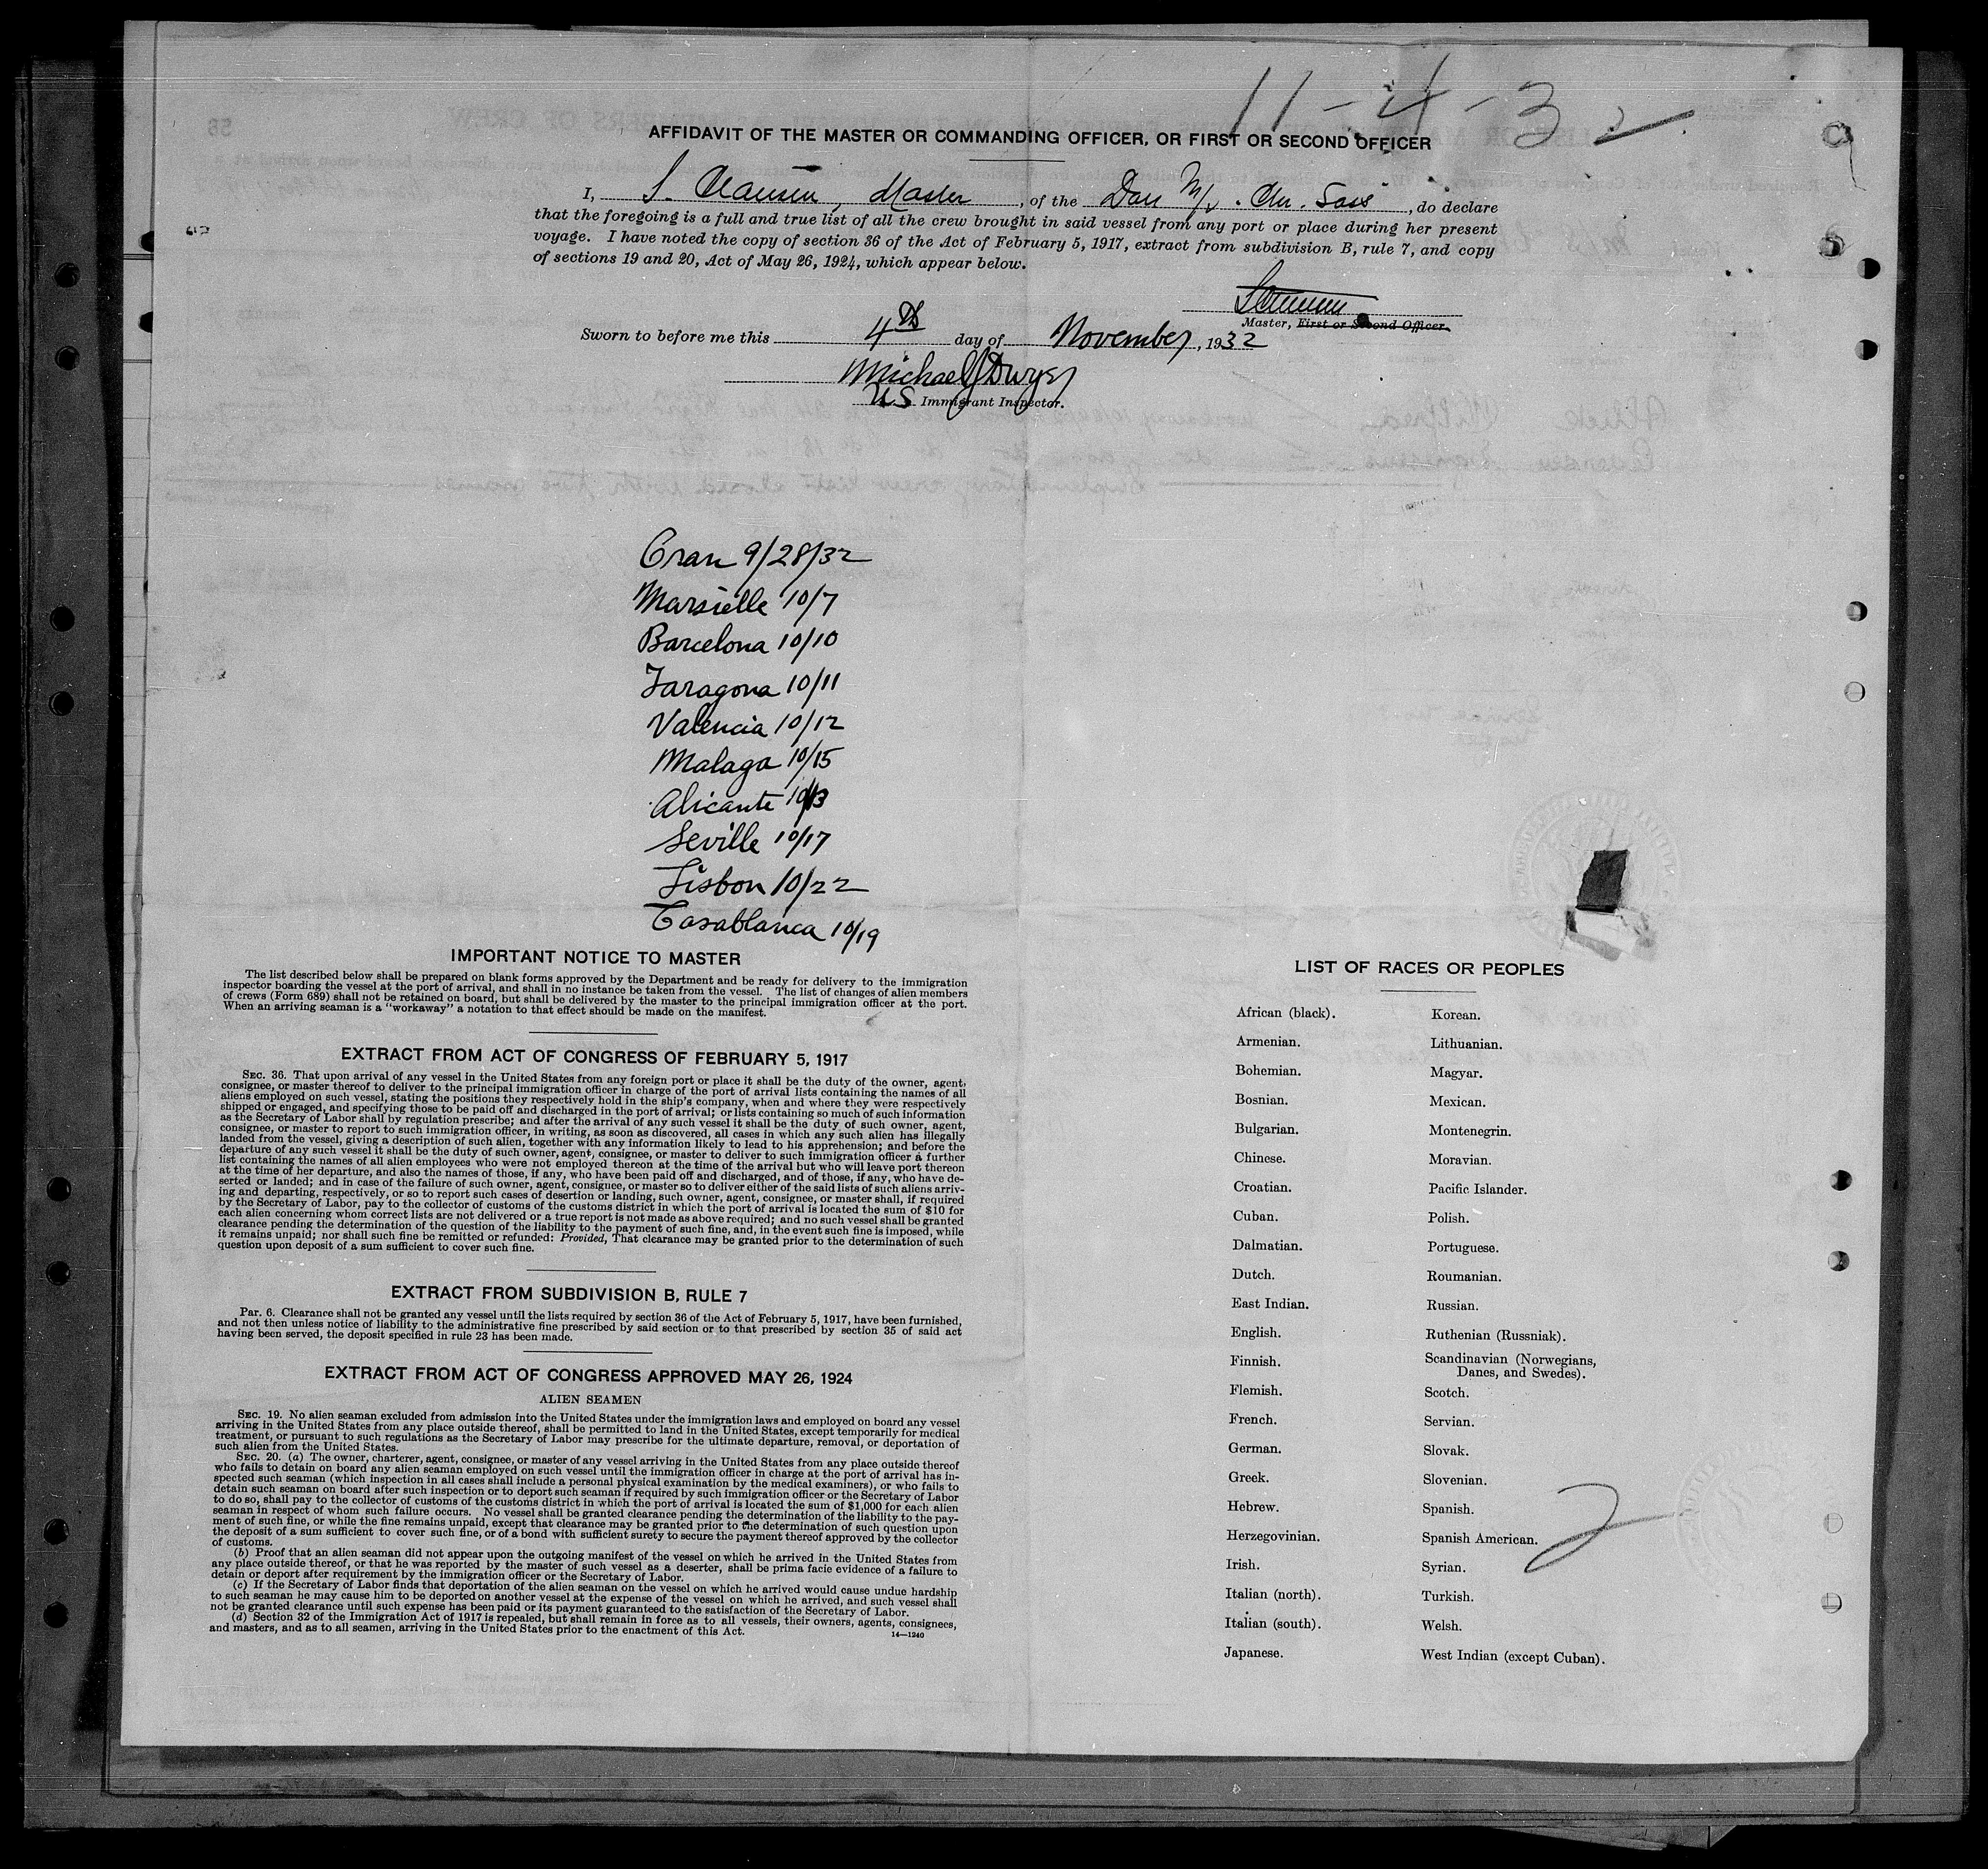 11-4-32
AFFIDAVIT OF THE MASTER OR COMMANDING OFFICER, OR FIRST OR SECOND OFFICER
I, S. Clausen, Master, of the Dan M/v. Chr. Sass, do declare
that the foregoing is a full and true list of all the crew brought in said vessel from any port or place during her present
voyage. I have noted the copy of section 36 of the Act of February 5, 1917, extract from subdivision B, rule 7, and copy
of sections 19 and 20, Act of May 26, 1924, which appear below.
Master, First or Second Officer.
Sworn to before me this 4th day of November, 1932
Michael J Dwyer
US Immigrant Inspector.
Oran 9/28/32
Marsielle 10/7
Barcelona 10/10
Taragona 10/11
Valencia 10/12
Malaga 10/15
Alicante 10/13
Seville 10/17
Lisbon 10/22
Casablanca 10/19
IMPORTANT NOTICE TO MASTER
The list described below shall be prepared on blank forms approved by the Department and be ready for delivery to the immigration
inspector boarding the vessel at the port of arrival, and shall in no instance be taken from the vessel. The list of changes of alien members
of crews (Form 689) shall not be retained on board, but shall be delivered by the master to the principal immigration officer at the port.
When an arriving seaman is a "workaway" a notation to that effect should be made on the manifest.
EXTRACT FROM ACT OF CONGRESS OF FEBRUARY 5, 1917
SEC. 36. That upon arrival of any vessel in the United States from any foreign port or place it shall be the duty of the owner, agent,
consignee, or master thereof to deliver to the principal immigration officer in charge of the port of arrival lists containing the names of all
aliens employed on such vessel, stating the positions they respectively hold in the ship's company, when and where they were respectively
shipped or engaged, and specifying those to be paid off and discharged in the port of arrival; or lists containing so much of such information
as the Secretary of Labor shall by regulation prescribe; and after the arrival of any such vessel it shall be the duty of such owner, agent,
consignee, or master to report to such immigration officer, in writing, as soon as discovered, all cases in which any such alien has illegally
landed from the vessel, giving a description of such alien, together with any information likely to lead to his apprehension; and before the
departure of any such vessel it shall be the duty of such owner, agent, consignee, or master to deliver to such immigration officer a further
list containing the names of all alien employees who were not employed thereon at the time of the arrival but who will leave port thereon
at the time of her departure, and also the names of those, if any, who have been paid off and discharged, and of those, if any, who have de-
serted or landed; and in case of the failure of such owner, agent, consignee, or master so to deliver either of the said lists of such aliens arriv-
ing and departing, respectively, or so to report such cases of desertion or landing, such owner, agent, consignee, or master shall, if required
by the Secretary of Labor, pay to the collector of customs of the customs district in which the port of arrival is located the sum of $10 for
each alien concerning whom correct lists are not delivered or a true report is not made as above required; and no such vessel shall be granted
clearance pending the determination of the question of the liability to the payment of such fine, and, in the event such fine is imposed, while
it remains unpaid; nor shall such fine be remitted or refunded: Provided, That clearance may be granted prior to the determination of such
question upon deposit of a sum sufficient to cover such fine.
EXTRACT FROM SUBDIVISION B, RULE 7
Par. 6. Clearance shall not be granted any vessel until the lists required by section 36 of the Act of February 5, 1917, have been furnished,
and not then unless notice of liability to the administrative fine prescribed by said section or to that prescribed by section 35 of said act
having been served, the deposit specified in rule 23 has been made.
EXTRACT FROM ACT OF CONGRESS APPROVED MAY 26, 1924
ALIEN SEAMEN
SEC. 19. No alien seaman excluded from admission into the United States under the immigration laws and employed on board any vessel
arriving in the United States from any place outside thereof, shall be permitted to land in the United States, except temporarily for medical
treatment, or pursuant to such regulations as the Secretary of Labor may prescribe for the ultimate departure, removal, or deportation of
such alien from the United States.
SEC. 20. (a) The owner, charterer, agent, consignee, or master of any vessel arriving in the United States from any place outside thereof
who fails to detain on board any alien seaman employed on such vessel until the immigration officer in charge at the port of arrival has in-
spected such seaman (which inspection in all cases shall include a personal physical examination by the medical examiners), or who fails to
detain such seaman on board after such inspection or to deport such seaman if required by such immigration officer or the Secretary of Labor
to do so, shall pay to the collector of customs of the customs district in which the port of arrival is located the sum of $1,000 for each alien
seaman in respect of whom such failure occurs. No vessel shall be granted clearance pending the determination of the liability to the pay-
ment of such fine, or while the fine remains unpaid, except that clearance may be granted prior to the determination of such question upon
the deposit of a sum sufficient to cover such fine, or of a bond with sufficient surety to secure the payment thereof approved by the collector
of customs.
(b) Proof that an alien seaman did not appear upon the outgoing manifest of the vessel on which he arrived in the United States from
any place outside thereof, or that he was reported by the master of such vessel as a deserter, shall be prima facie evidence of a failure to
detain or deport after requirement by the immigration officer or the Secretary of Labor.
(c) If the Secretary of Labor finds that deportation of the alien seaman on the vessel on which he arrived would cause undue hardship
to such seaman he may cause him to be deported on another vessel at the expense of the vessel on which he arrived, and such vessel shall
not be granted clearance until such expense has been paid or its payment guaranteed to the satisfaction of the Secretary of Labor.
(d) Section 32 of the Immigration Act of 1917 is repealed, but shall remain in force as to all vessels, their owners, agents, consignees,
and masters, and as to all seamen, arriving in the United States prior to the enactment of this Act.
14—1240
LIST OF RACES OR PEOPLES
African (black).
Armenian.
Bohemian.
Bosnian.
Bulgarian.
Chinese.
Croatian.
Cuban.
Dalmatian.
Dutch.
East Indian.
English.
Finnish.
Flemish.
French.
German.
Greek.
Hebrew.
Herzegovinian.
Irish.
Italian (north).
Italian (south).
Japanese.
Korean.
Lithuanian.
Magyar.
Mexican.
Montenegrin.
Moravian.
Pacific Islander.
Polish.
Portuguese.
Roumanian.
Russian.
Ruthenian (Russniak).
Scandinavian (Norwegians,
Danes, and Swedes).
Scotch.
Servian.
Slovak.
Slovenian.
Spanish.
Spanish American.
Syrian.
Turkish.
Welsh.
West Indian (except Cuban).
2